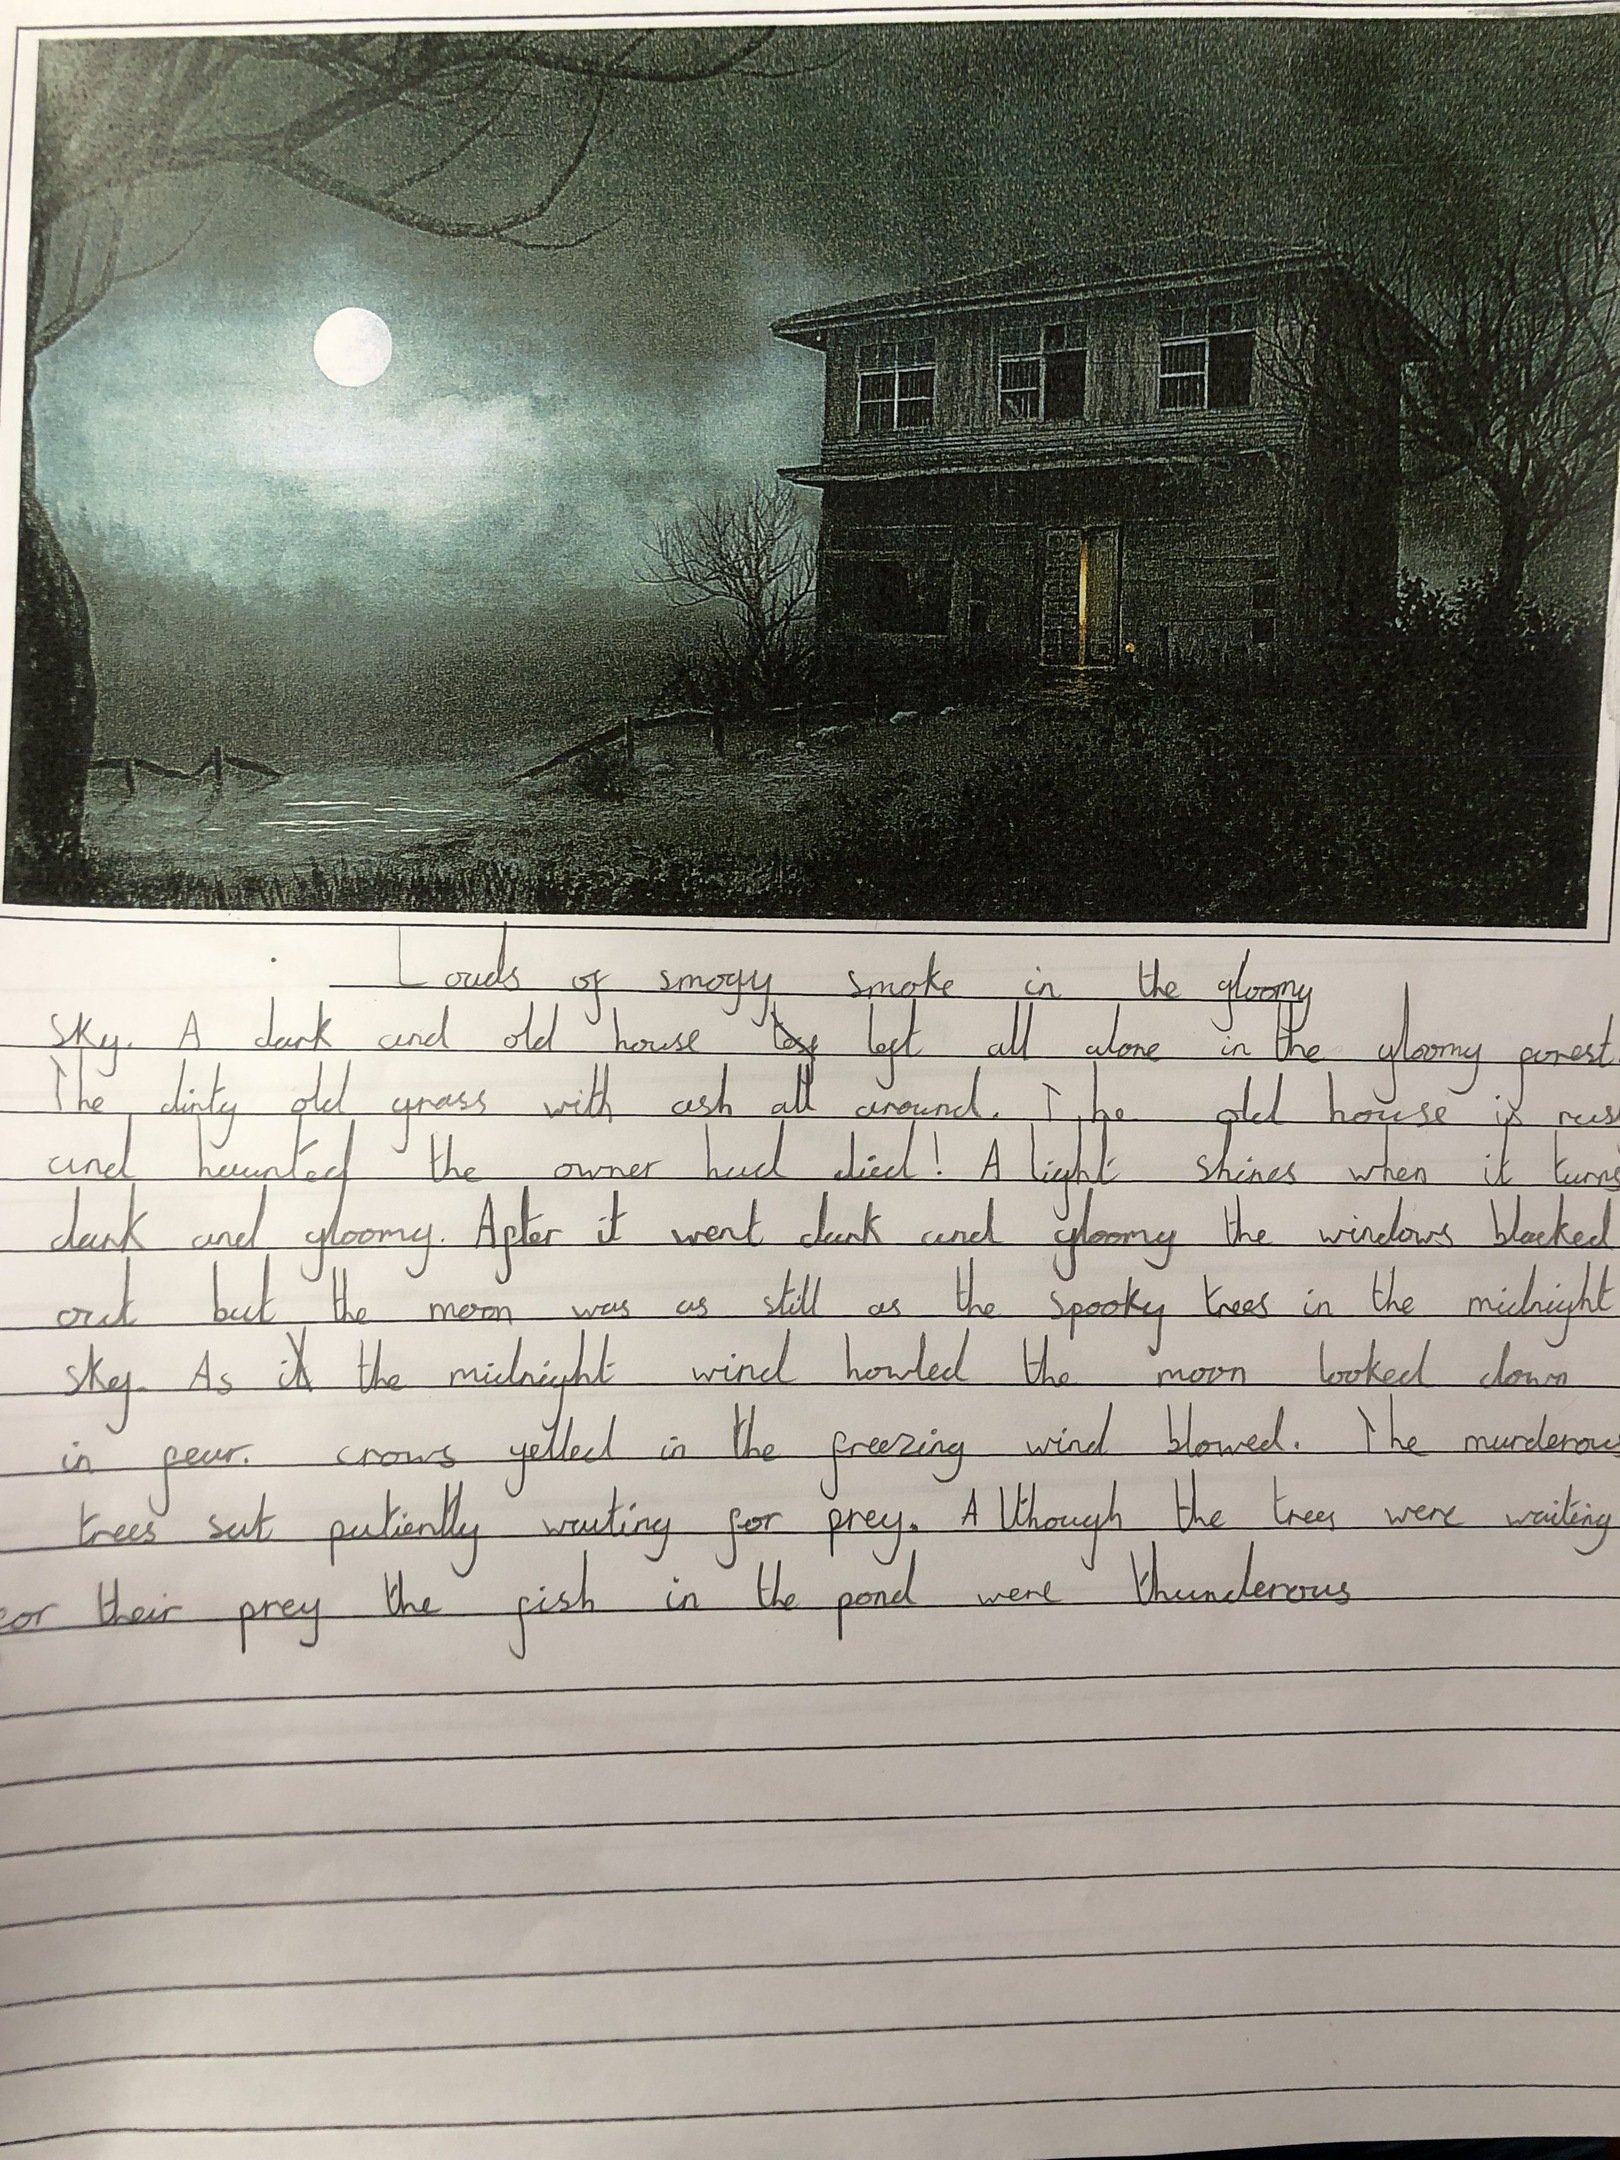 Louds of smogy smoke in the gloomy
sky. A dark and old house left all alone in the gloomy forest.
The dirty old grass with ash all around. The old house is
and haunted the owner had died! A light shines when it turns
dark and gloomy. After it went dark and gloomy the windows blacked
out but the moon was as still as the spooky trees in the midnight
sky. As the midnight wind howled the moon looked down
in fear. crows yelled in the freezing wind blowed. The murderous
trees sat patiently waiting for prey. Although the trees were waiting
for their prey the fish in the pond were thunderous